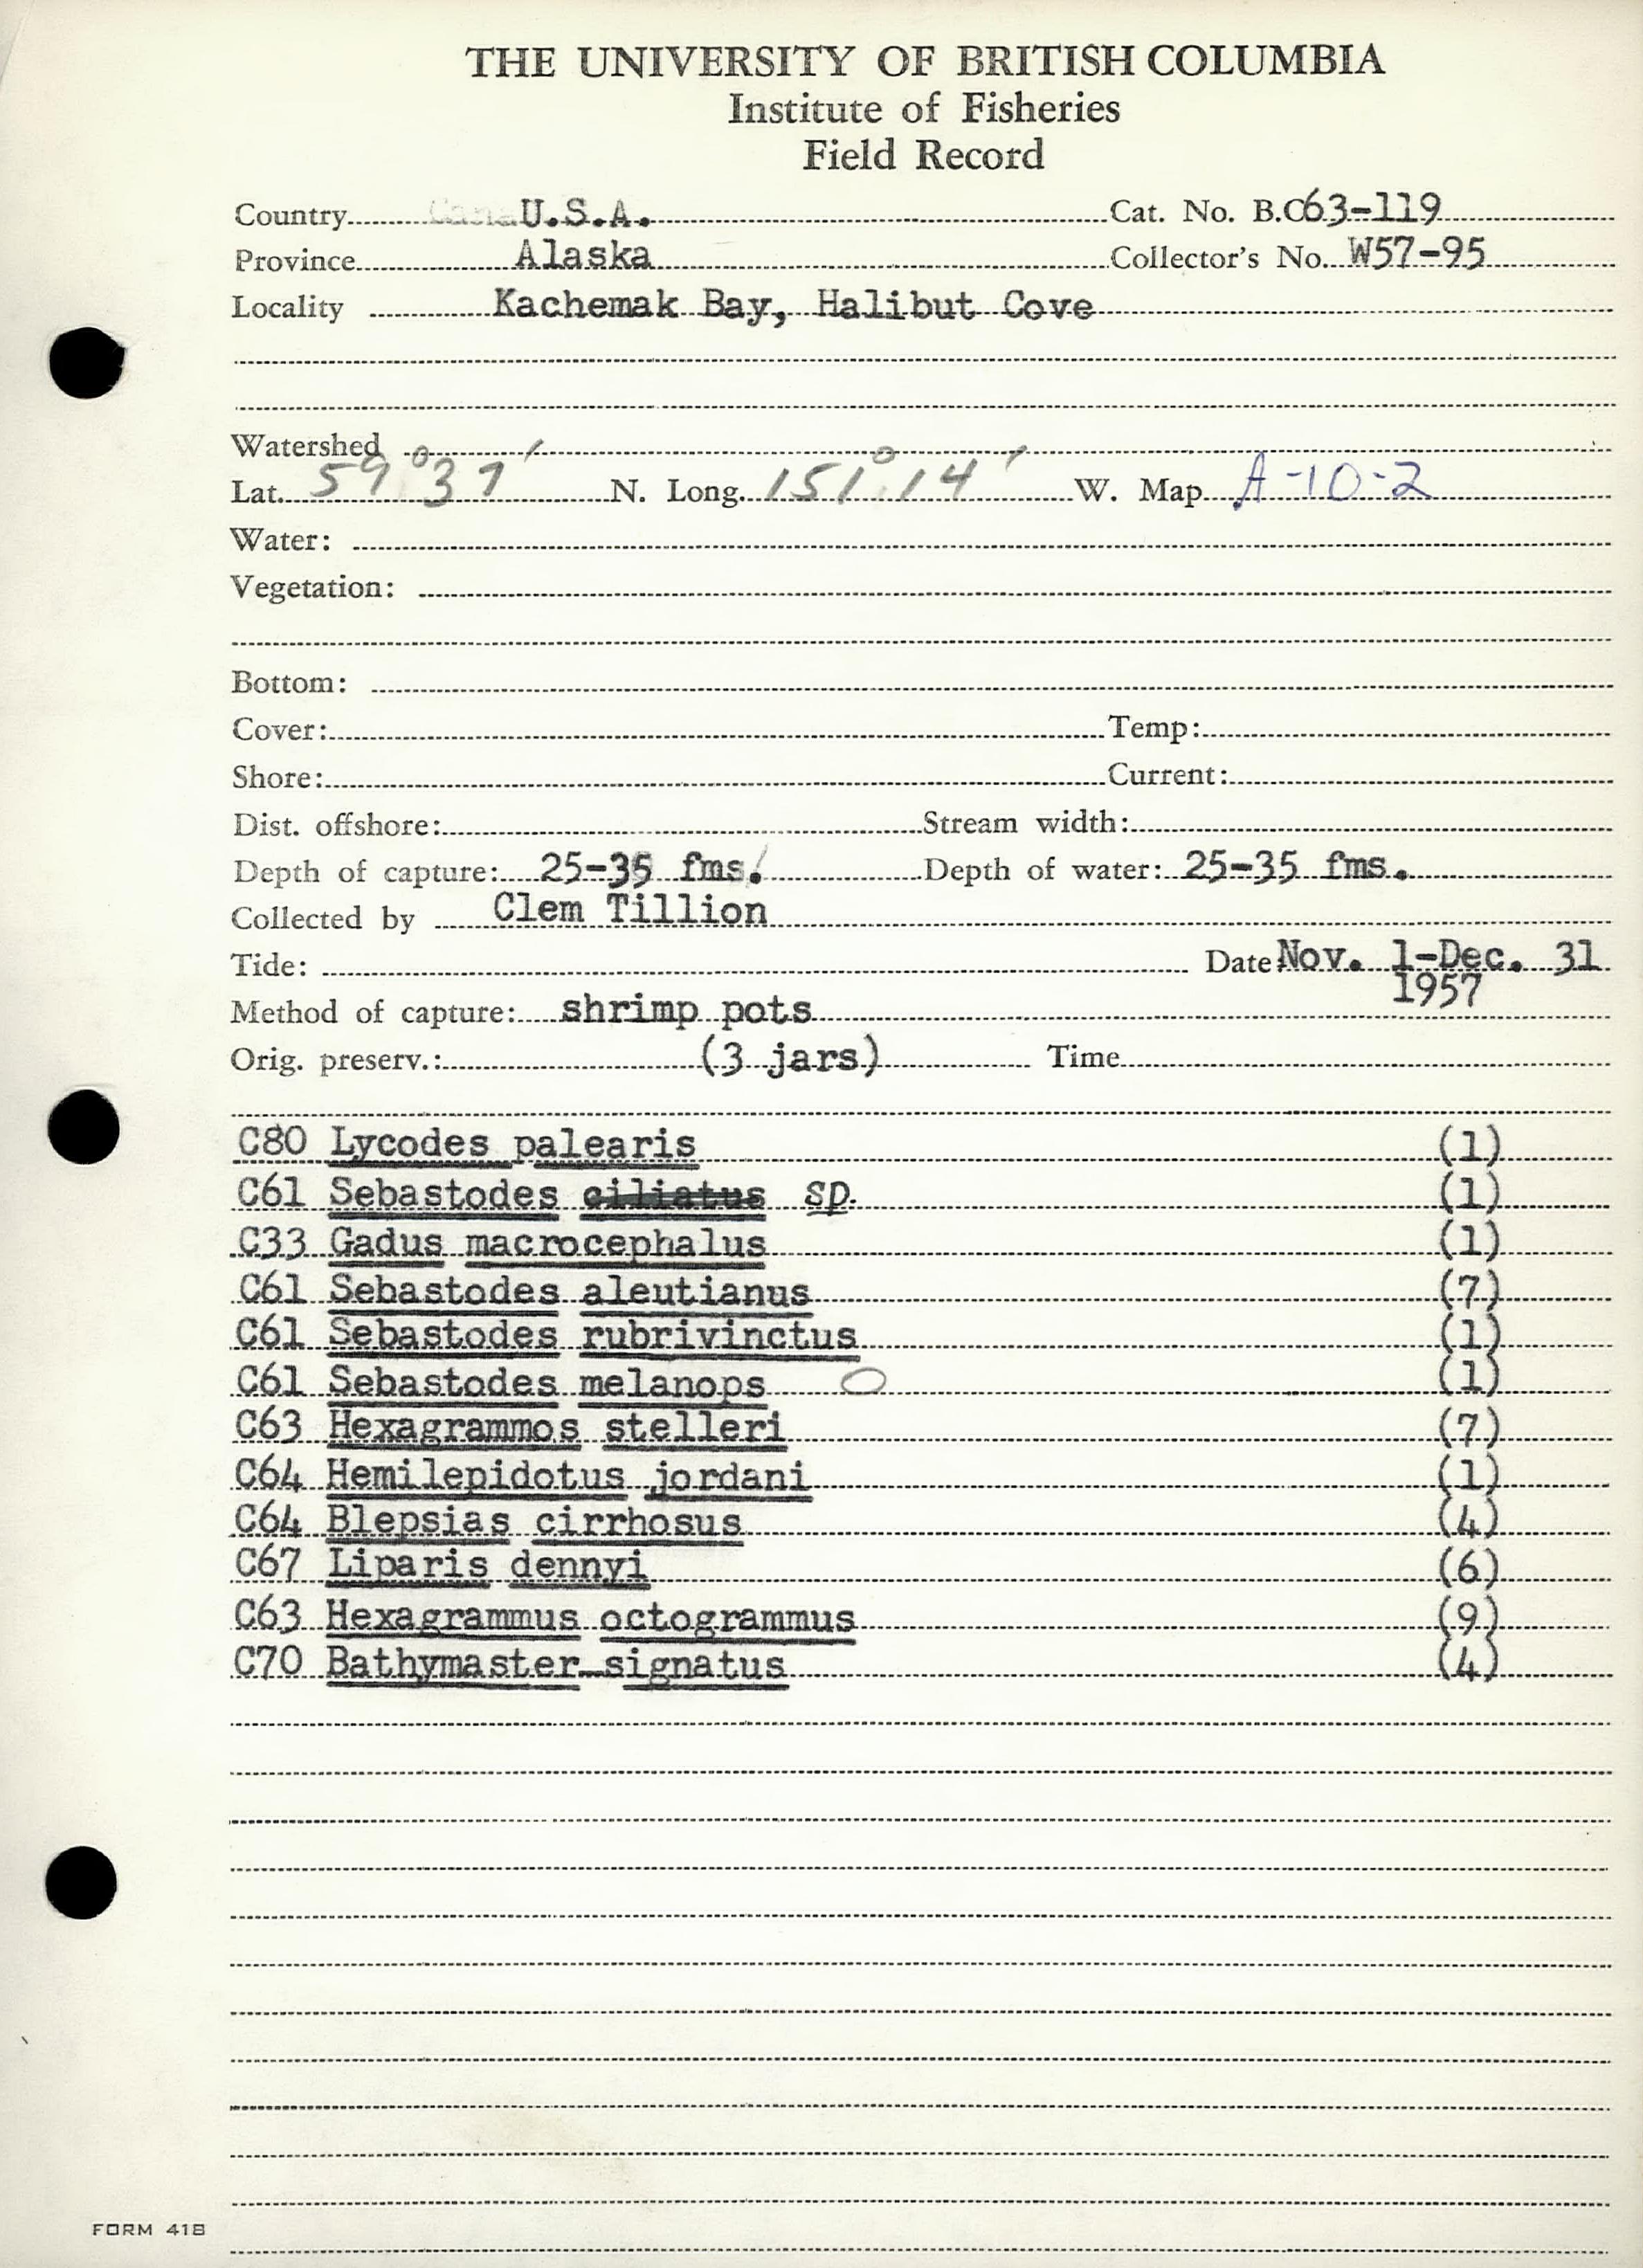 THE UNIVERSITY OF BRITISH COLUMBIA
Institute of Fisheries
Field Record
Country U.S.A. Cat. No. B.C63-119
Province Alaska Collector's No. W57-95
Locality Kachemak Bay, Halibut Cove
Watershed
Lat. 59°37' N. Long. 151°14' W. Map A-10-2
Water:
Vegetation:
Bottom:
Cover: Temp:
Shore: Current:
Dist. offshore: Stream width:
Depth of capture: 25-35 fms. Depth of water: 25-35 fms.
Collected by Clem Tillion
Tide: Date Nov. 1-Dec. 31
1957
Method of capture: shrimp pots
Orig. preserv.: (3 jars) Time
C80 Lycodes palearis (1)
C61 Sebastodes ciliatus sp. (1)
C33 Gadus macrocephalus (1)
C61 Sebastodes aleutianus (7)
C61 Sebastodes rubrivinctus (1)
C61 Sebastodes melanops (1)
C63 Hexagrammos stelleri (7)
C64 Hemilepidotus jordani (1)
C64 Blepsias cirrhosus (4)
C67 Liparis dennyi (6)
C63 Hexagrammus octogrammus (9)
C70 Bathymaster signatus (4)
FORM 41B